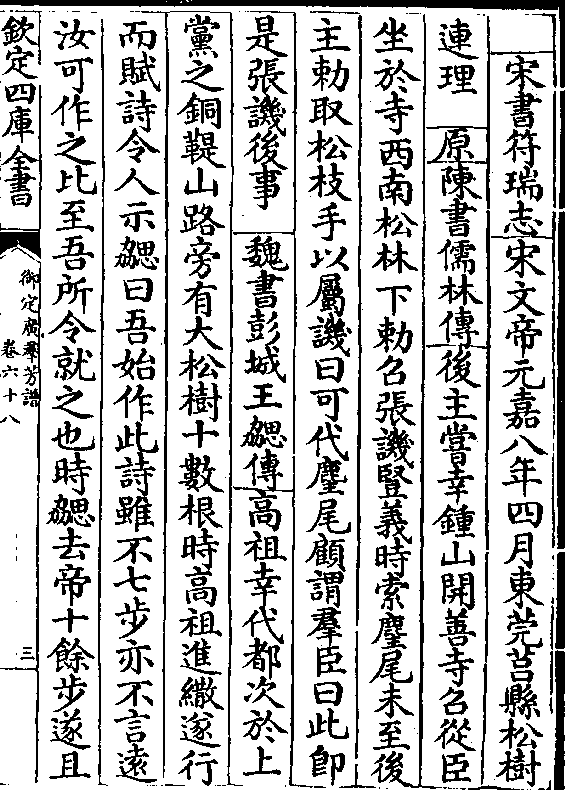 宋書符瑞志宋文帝元嘉八年四月東莞莒縣松樹
連理　原陳書儒林傳後主嘗幸鍾山開善寺召從臣
坐於寺西南松林下勅召張譏豎義時索麈尾未至後
主勅取松枝手以屬譏曰可代麈尾顧謂羣臣曰此即
是張譏後事　魏書彭城王勰傳高祖幸代都次於上
黨之銅鞮山路旁有大松樹十數根時高祖進繖遂行
而賦詩令人示勰曰吾始作此詩雖不七步亦不言遠
汝可作之比至吾所令就之也時勰去帝十餘步遂且
欽定四庫全書
御定廣羣芳譜
卷六十八
三